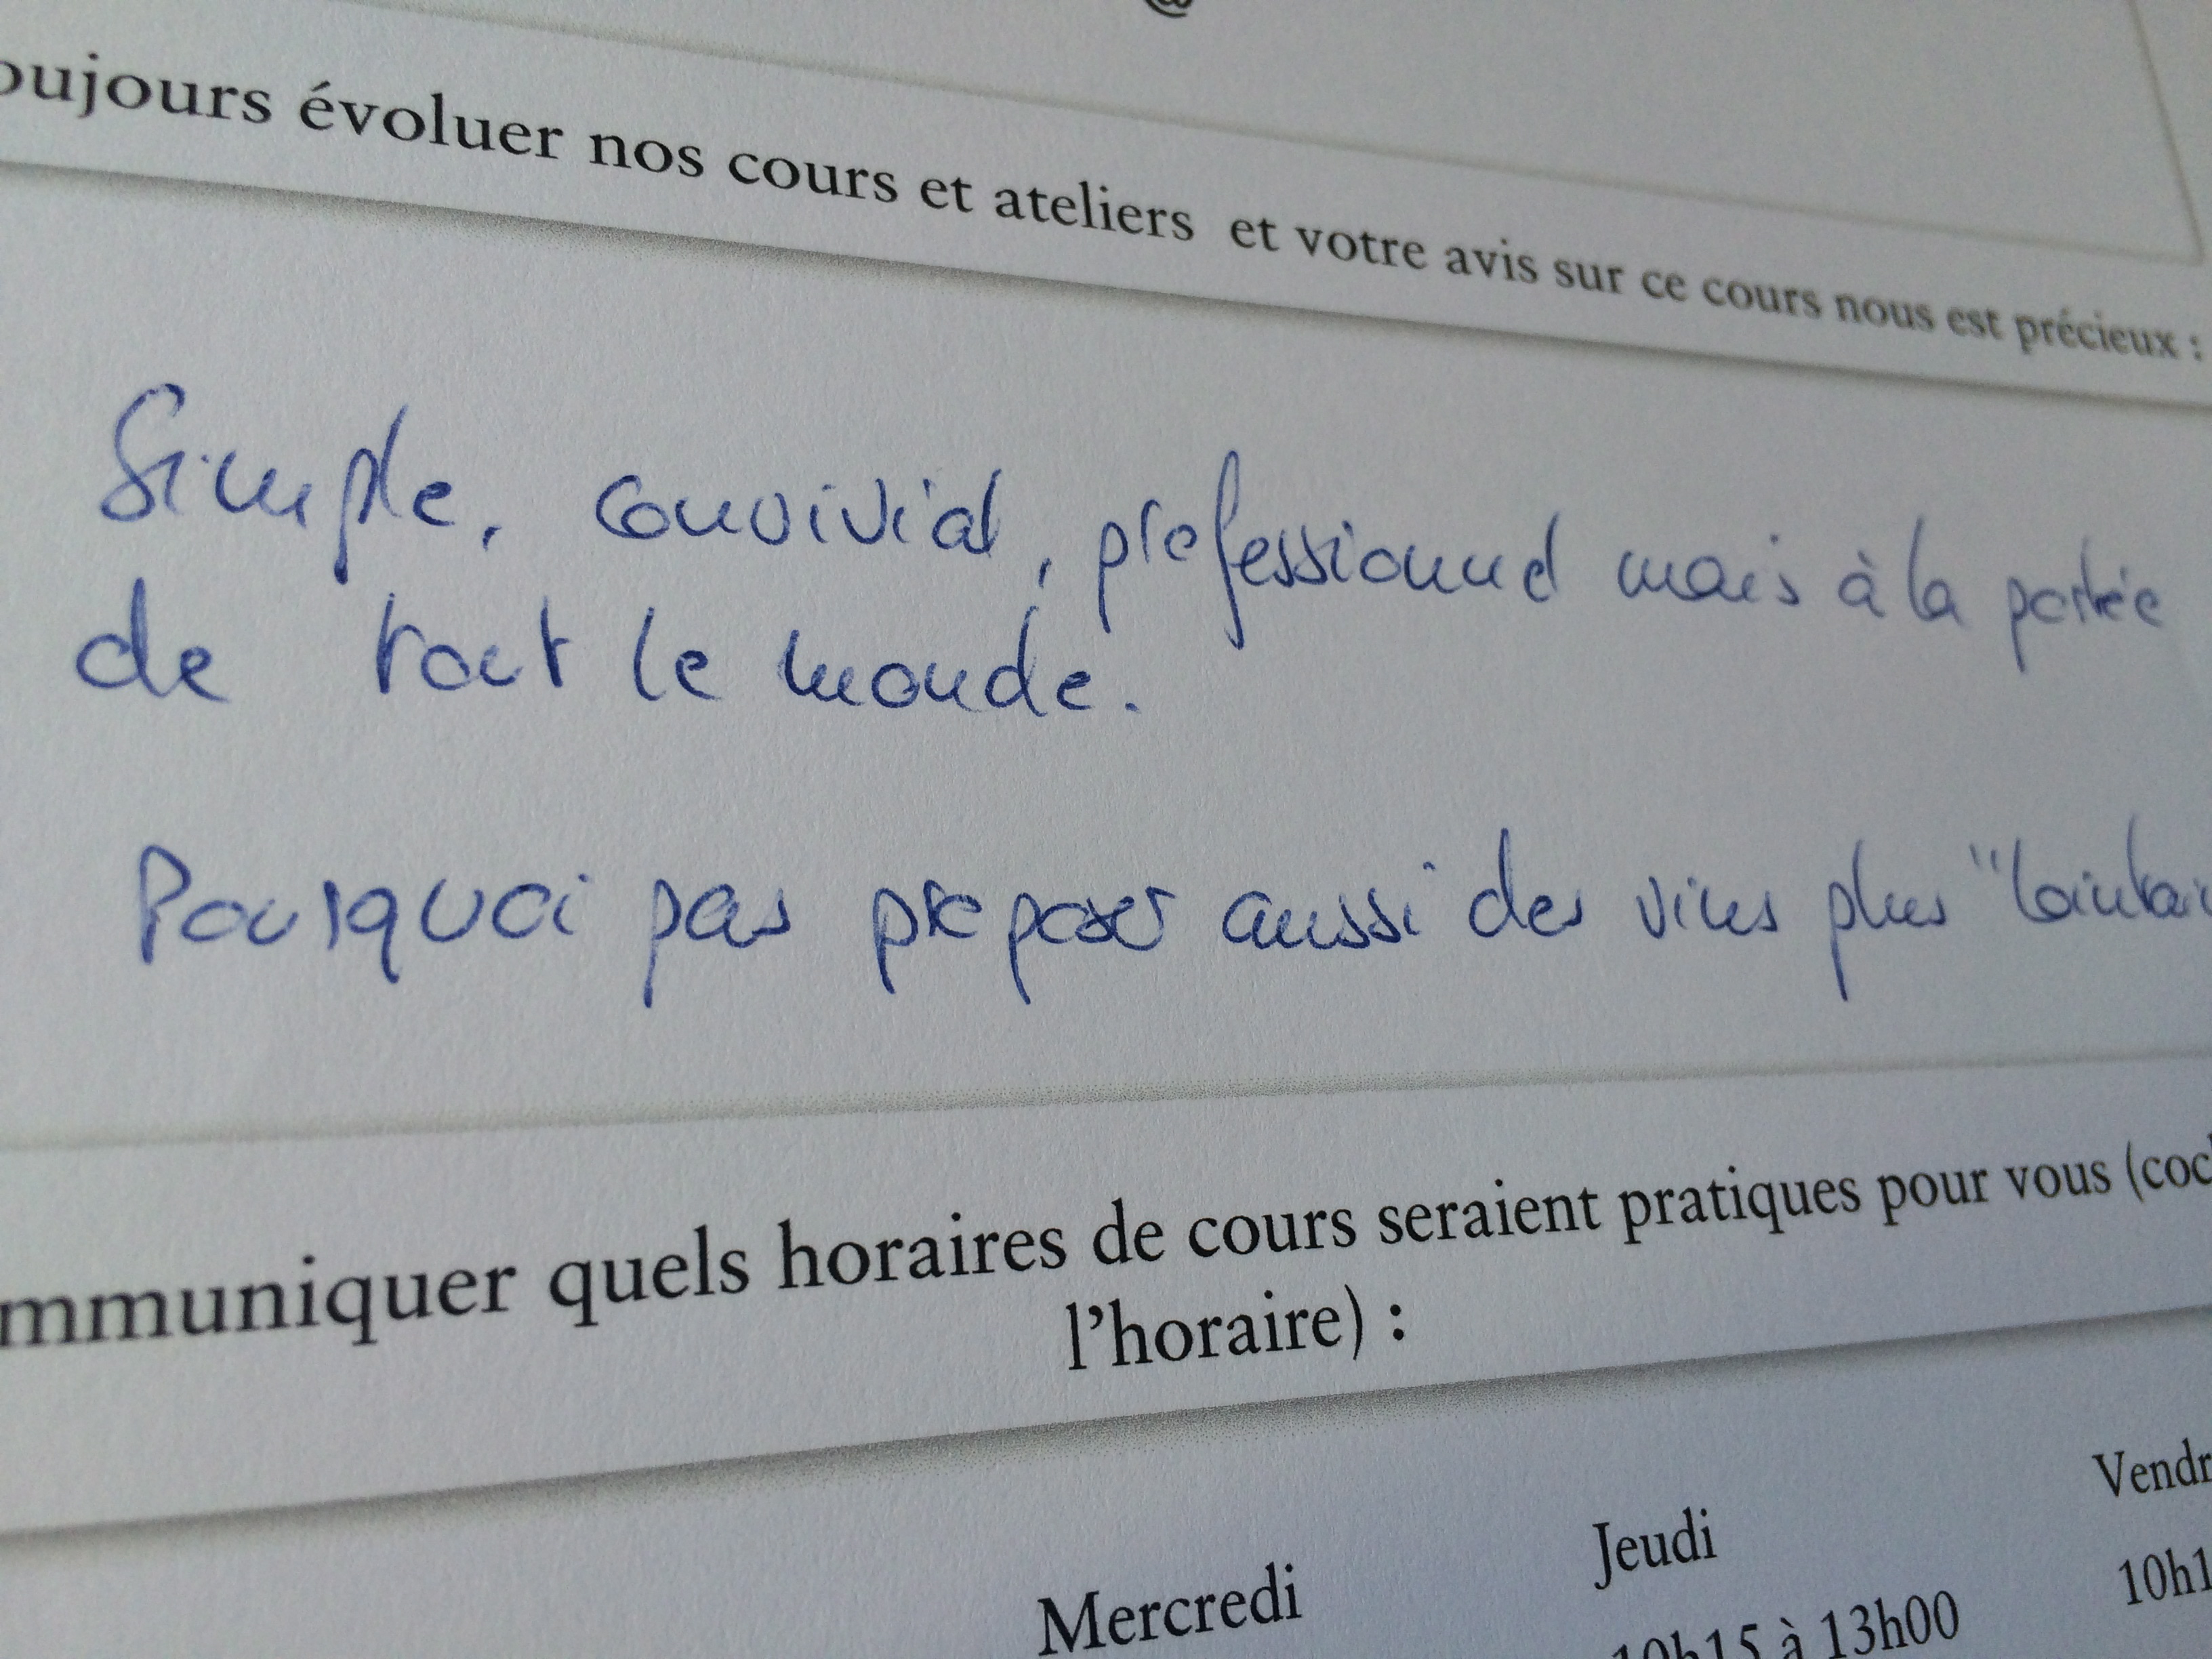 @
oujours évoluer nos cours et ateliers et votre avis sur ce cours nous est précieux :
Simple, convivial, professionnel mais à la portée
de tout le monde.
Pourquoi pas proposer aussi des vins plus "lointai
mmuniquer quels horaires de cours seraient pratiques pour vous (coc
l'horaire) :
Mercredi Jeudi Vendr
10h15 à 13h00 10h1